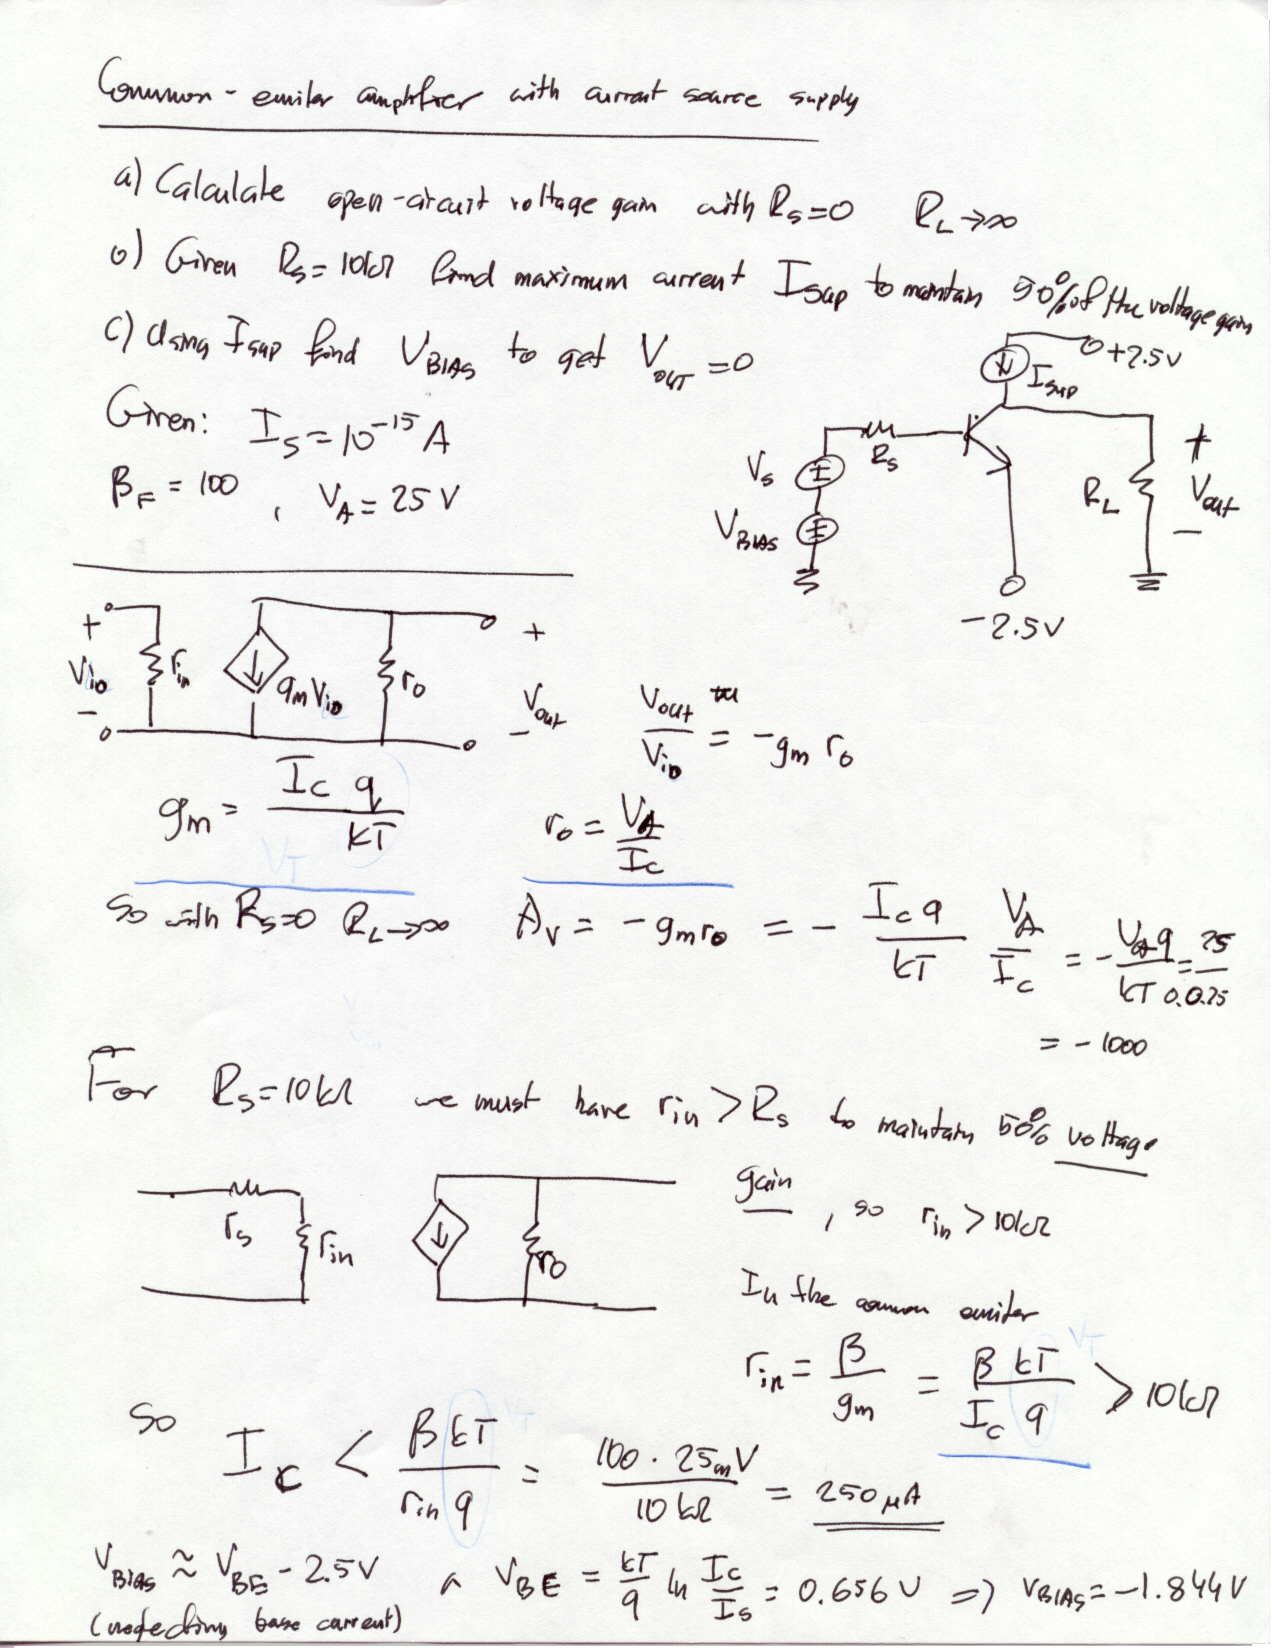 Common-emiter amplifier with current source supply
a) Calculate open-circuit voltage gain with Rs=0 RL→∞
b) Given Rs=10kΩ find maximum current Isup to maintain 50% of the voltage gain
c) Using Isup find VBIAS to get VOUT=0
Given: Is=10^-15 A
βF=100, VA=25V
+2.5V
Isup
Vs
Rs
VBIAS
RL
+
Vout
−
−2.5V
+
Vin
−
rin
gmVin
ro
+
Vout
−
Vout/Vin = −gm ro
gm = Ic q/kT
ro = VA/Ic
VT
So with Rs=0 RL→∞ Av = −gmro = − Ic q/kT VA/Ic = −VA q/kT = 25/0.025
= −1000
For Rs=10kΩ we must have rin > Rs to maintain 50% voltage
gain, so rin > 10kΩ
rs
rin
ro
In the common emiter
rin = β/gm = β kT/Ic q > 10kΩ
VT
So Ic < β kT/rin q = 100 · 25mV/10kΩ = 250μA
VT
VBIAS ≈ VBE − 2.5V VBE = kT/q ln Ic/Is = 0.656V ⇒ VBIAS = −1.844V
(neglecting base current)